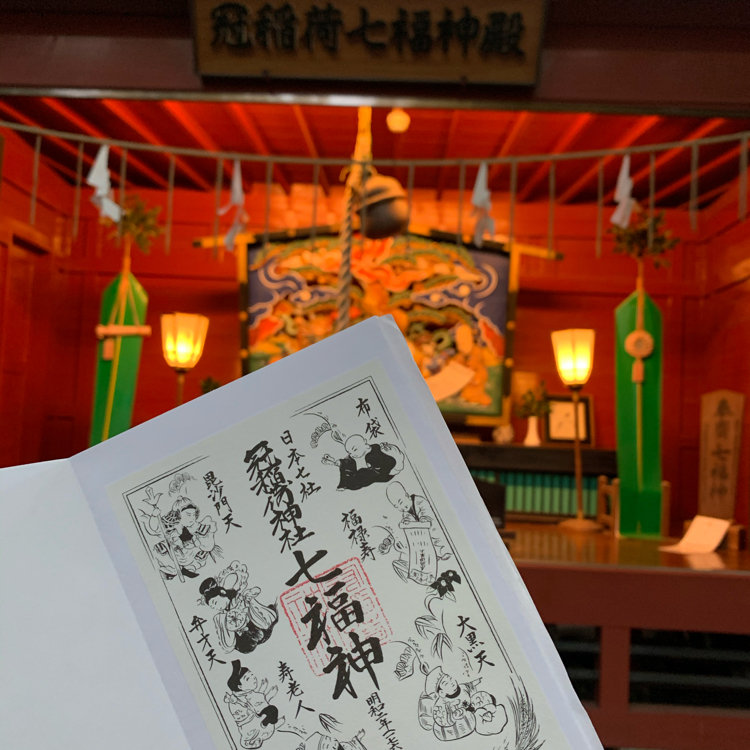 冠稲荷七福神殿
布袋
日本七社
冠稲荷神社
七福神
毘沙門天
福禄寿
弁才天
大黒天
寿老人
七福神